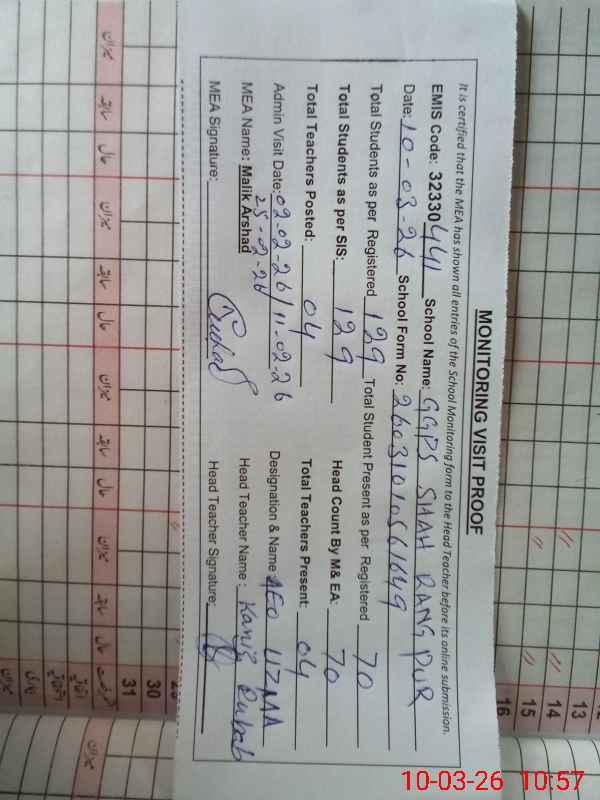 MONITORING VISIT PROOF
It is certified that the MEA has shown all entries of the School Monitoring form to the Head Teacher before its online submission.
EMIS Code: 32330441 School Name: GGPS SHAH RANG PUR
Date: 10-03-26 School Form No: 
Total Students as per Registered 129 Total Student Present as per Registered 70
Total Students as per SIS: 129 Head Count By M& EA: 70
Total Teachers Posted: 04 Total Teachers Present: 04
Admin Visit Date: 02-02-26/11-02-26 Designation & Name AEO UZMA
25-02-26
MEA Name: Malik Arshad Head Teacher Name: Kaniz Rubab
MEA Signature: Head Teacher Signature:
13
14
15
16
30
31
10-03-26 10:57